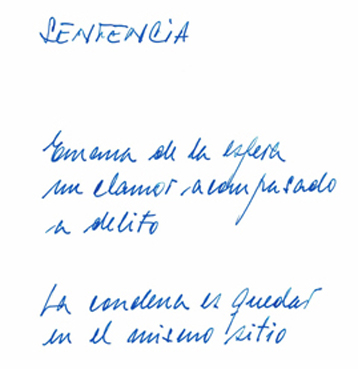 SENTENCIA
Emana de la esfera
un clamor acompasado
a delito
La condena es quedar
en el mismo sitio